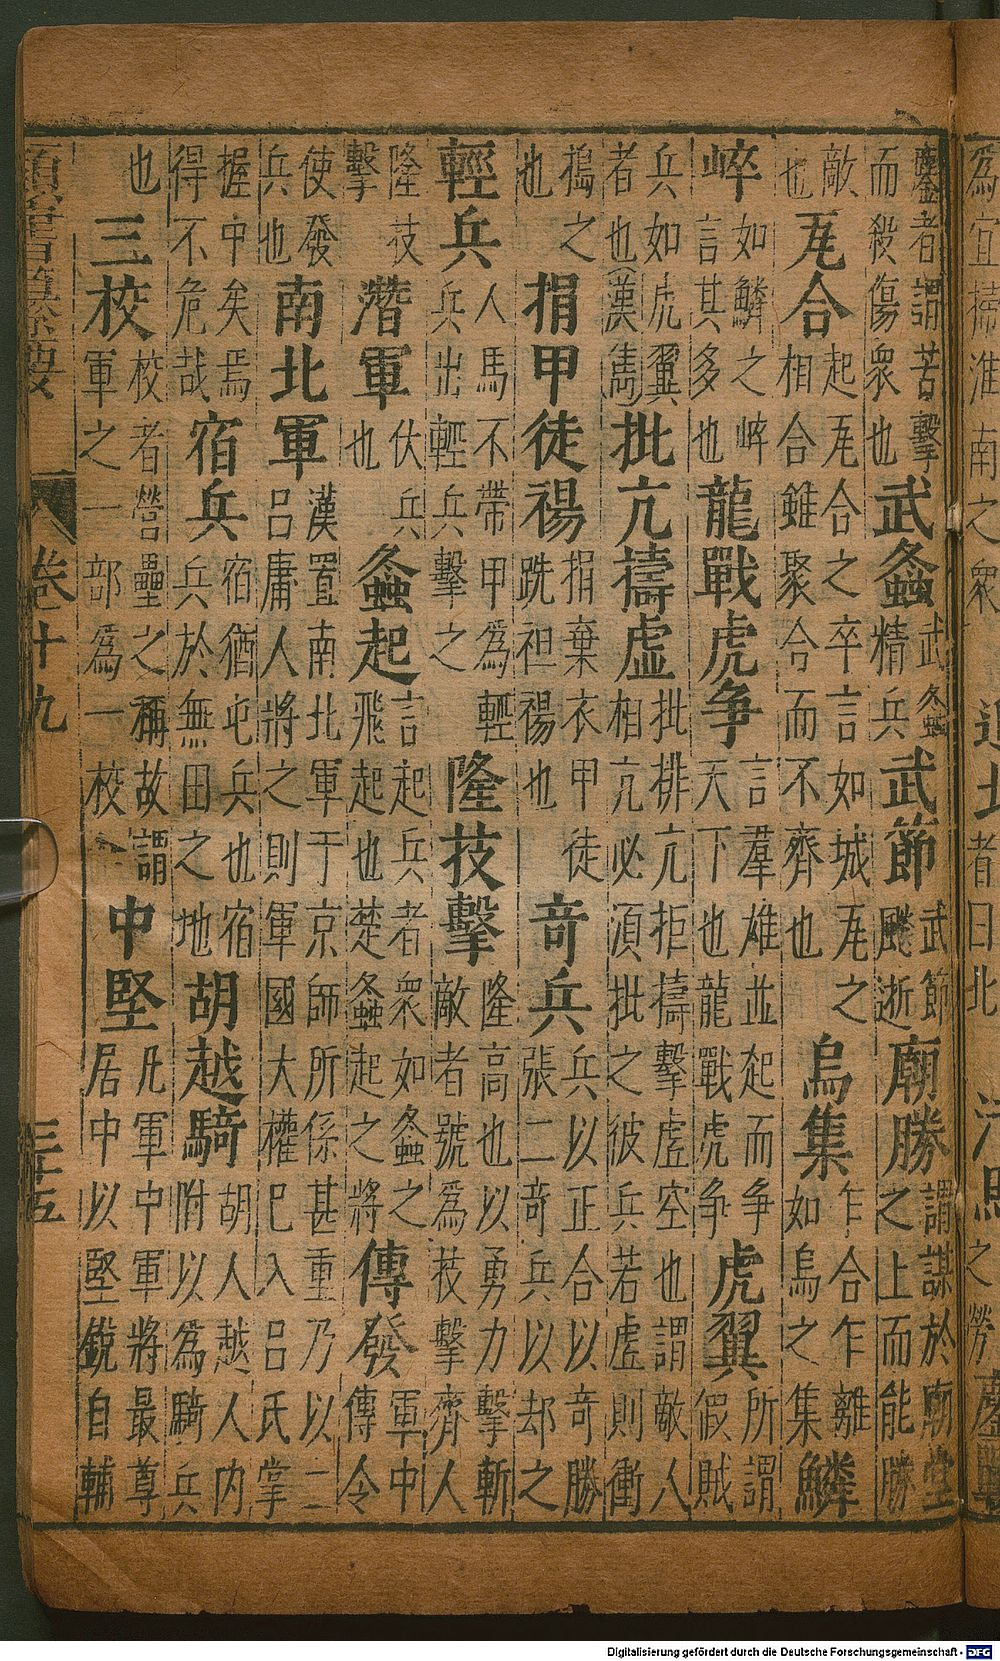 南之衆
者曰北
鏖者謂苦擊而殺傷衆也武螽武螽精兵武節武節飈逝廟勝謂謀於廟堂之上而能勝
敵也瓦合起瓦合之卒言如城瓦之相合雖聚合而不齊也烏集乍合乍離如烏之集鱗
崪如鱗之崪言其多也龍戰虎争言羣雄並起而争天下也龍戰虎争虎翼所謂假賊
兵如虎翼者也(漢雋)批亢擣虛批排亢拒擣擊虛空也謂敵人相亢必須批之彼兵若虛則衝
搗之也捐甲徒裼捐棄衣甲徒跣袒裼也竒兵兵以正合以竒勝張二竒兵以却之
輕兵人馬不帶甲為輕兵出輕兵擊之隆技擊隆高也以勇力擊斬敵者號為技擊齊人
隆技擊潛軍伏兵也螽起言起兵者衆如螽之飛起也楚螽起之將傳發軍中傳令
使發兵也南北軍漢置南北軍于京師所係甚重乃以二呂庸人將之則軍國大權已入呂氏掌
握中矣焉得不危哉宿兵宿猶屯兵也宿兵於無田之地胡越騎胡人越人内附以為騎兵
也三校校者營壘之稱故謂軍之一部為一校中堅凡軍中軍將最尊居中以堅銳自輔
類書纂要 卷十九 三十五
Digitalisierung gefördert durch die Deutsche Forschungsgemeinschaft - DFG